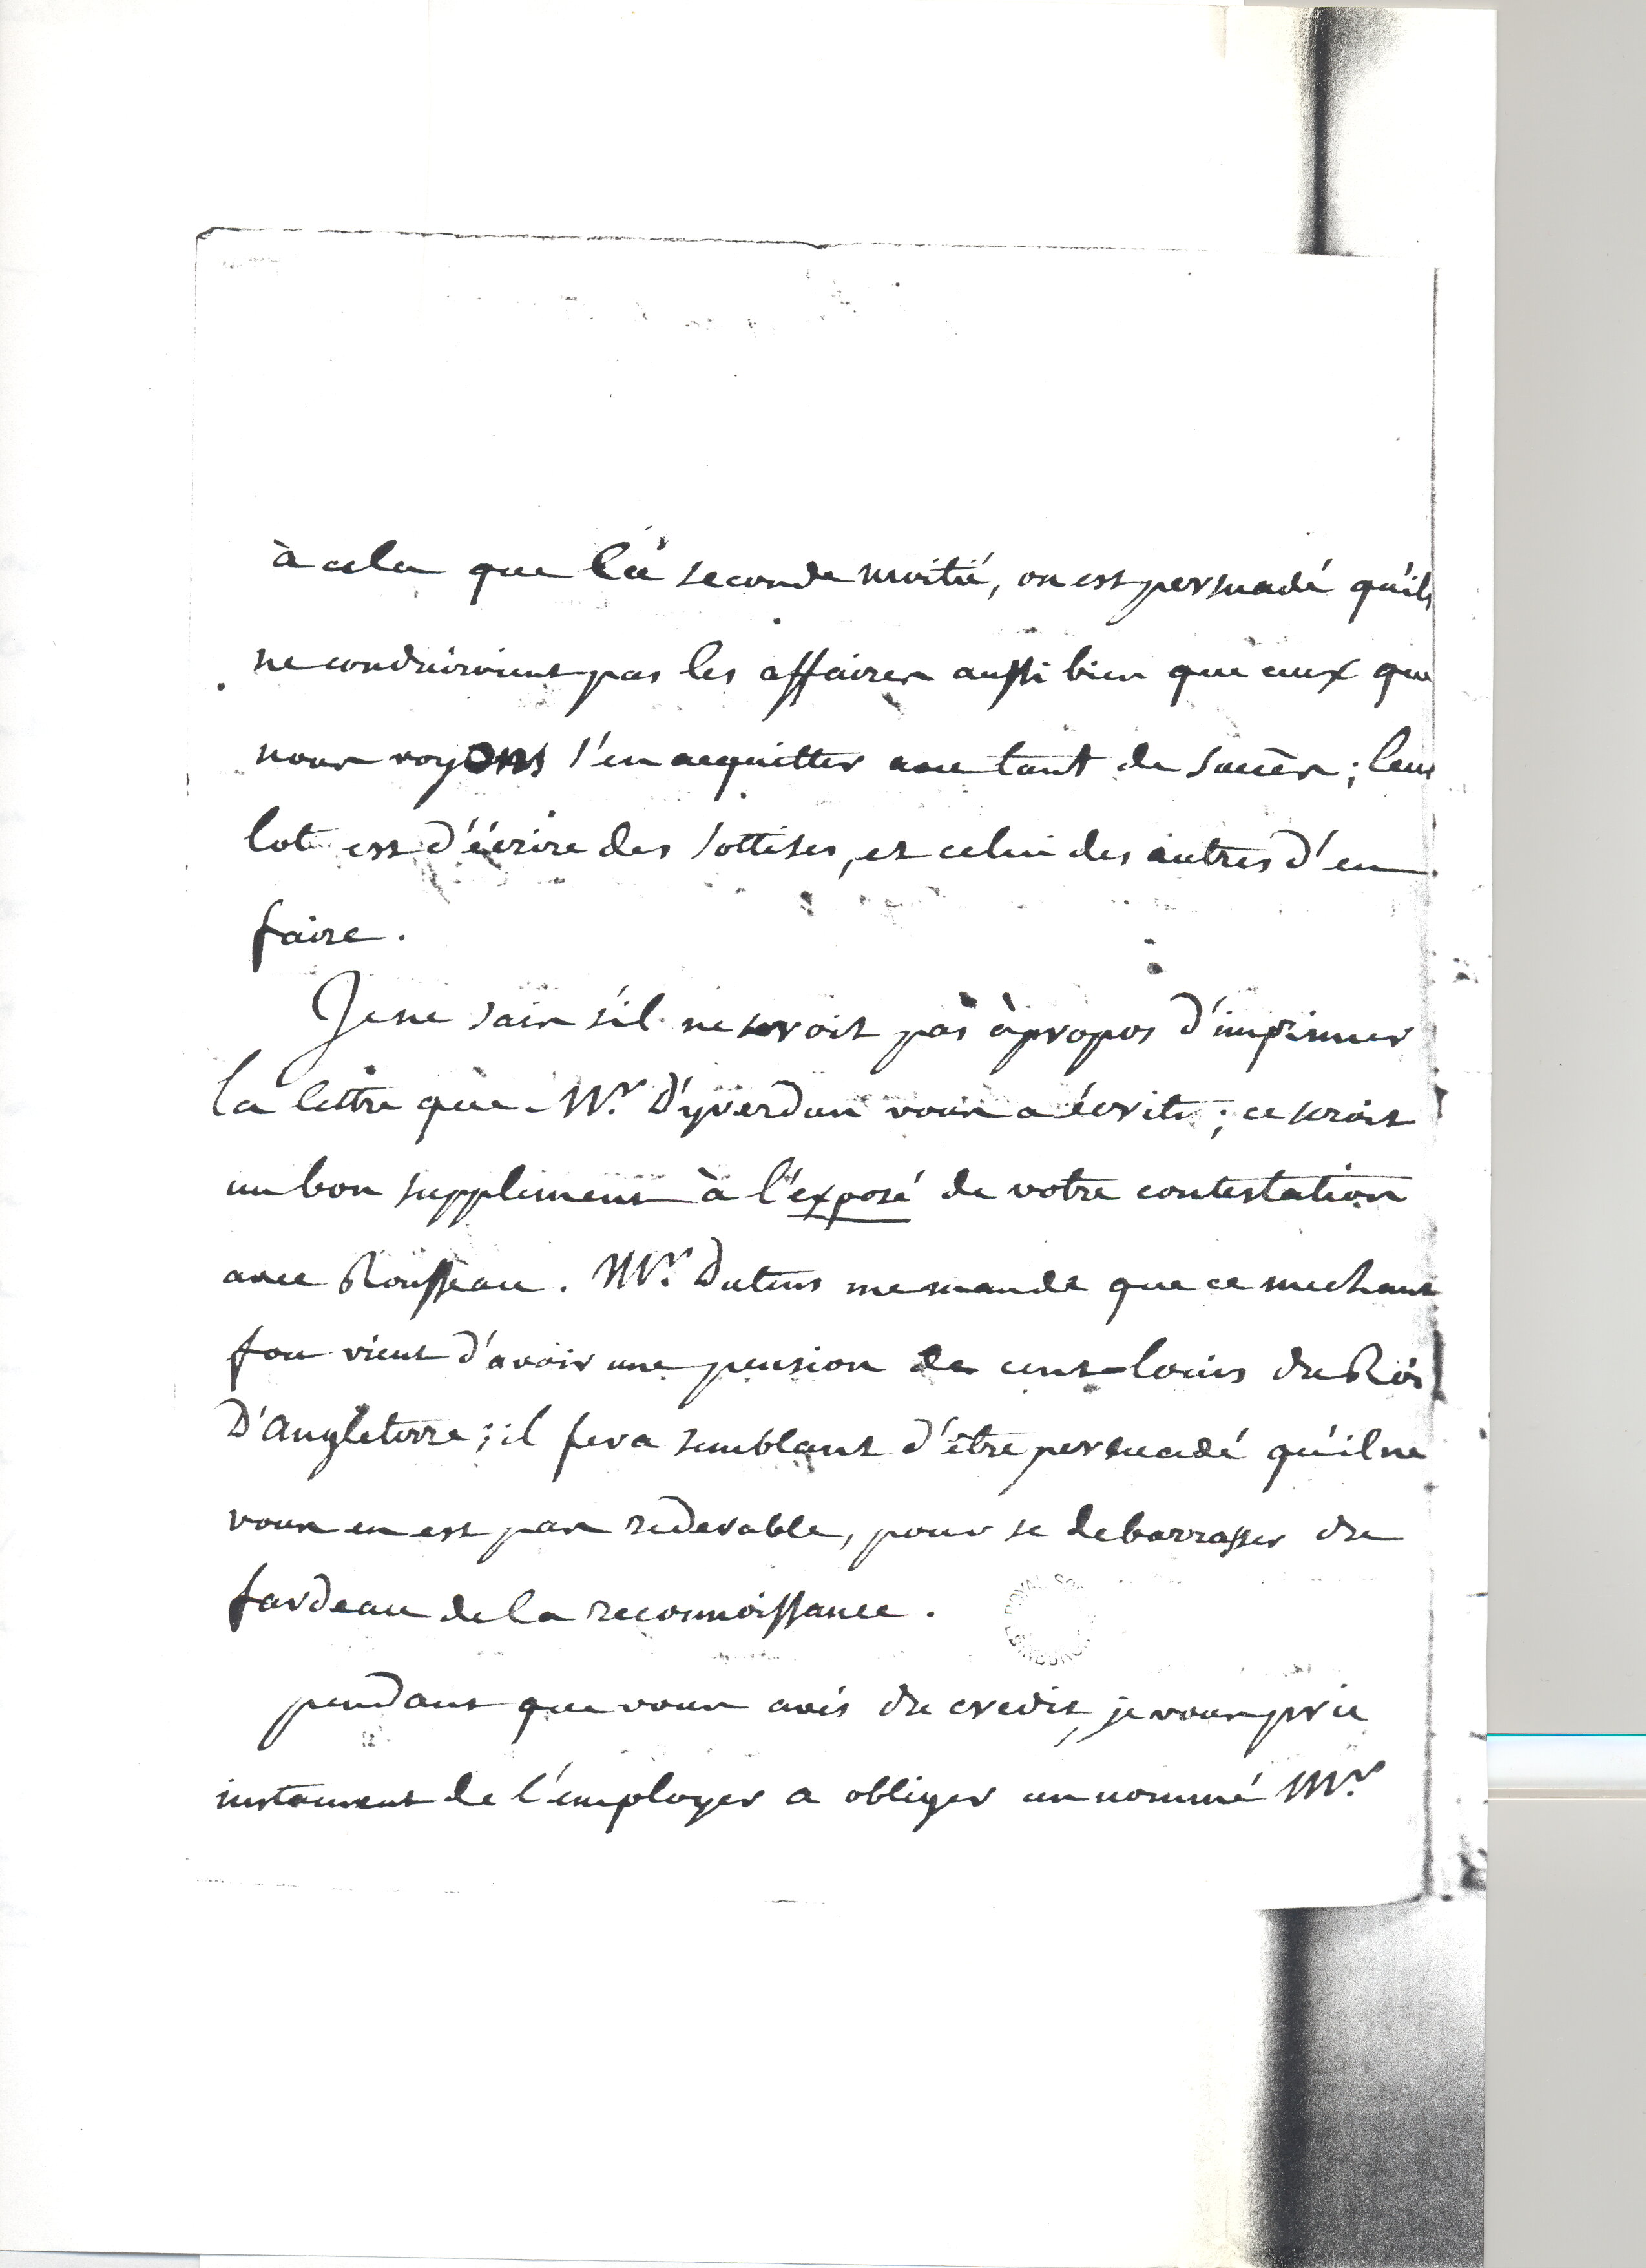 à cela que la seconde moitié, on est persuadé qu'ils
ne conduiroient pas les affaires aussi bien que ceux que
nous voyons s'en acquitter avec tant de succès ; leur
lot est d'écrire des sottises, et celui des autres d'en
faire.
Je ne sais s'il ne seroit pas à propos d'imprimer
la lettre que Mr. D'yverdun vous a écrite ; ce seroit
un bon supplement à l'exposé de votre contestation
avec Rousseau. Mr. Dutens me mande que ce mechant
fou vient d'avoir une pension de cent louis du Roi
D'Angleterre ; il fera semblant d'être persuadé qu'il ne
vous en est pas redevable, pour se debarrasser du
fardeau de la reconnoissance.
ROYAL SOC
EDINBURGH
pendant que vous avés du credit, je vous prie
instament de l'employer a obliger un nommé Mr.